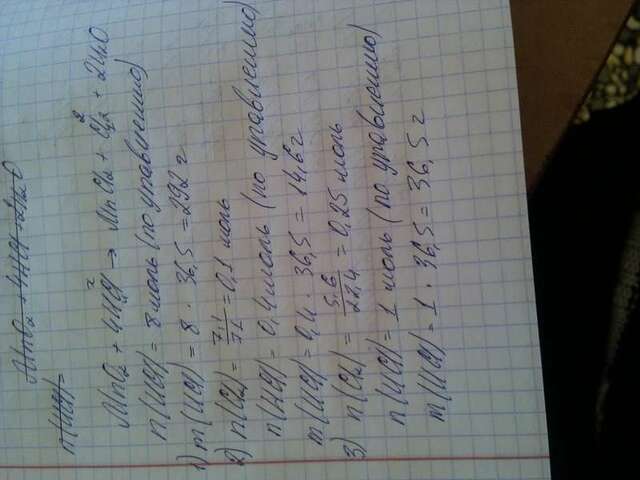 MnO₂ + 4HCl + 2H₂O
n(HCl) =
MnO₂ + 4HCl → MnCl₂ + Cl₂ + 2H₂O
x 2
n(HCl) = 8 моль (по уравнению)
1) m(HCl) = 8 · 36,5 = 292 г
2) n(Cl₂) = 7,1/71 = 0,1 моль
n(HCl) = 0,4 моль (по уравнению)
m(HCl) = 0,4 · 36,5 = 14,6 г
3) n(Cl₂) = 5,6/22,4 = 0,25 моль
n(HCl) = 1 моль (по уравнению)
m(HCl) = 1 · 36,5 = 36,5 г